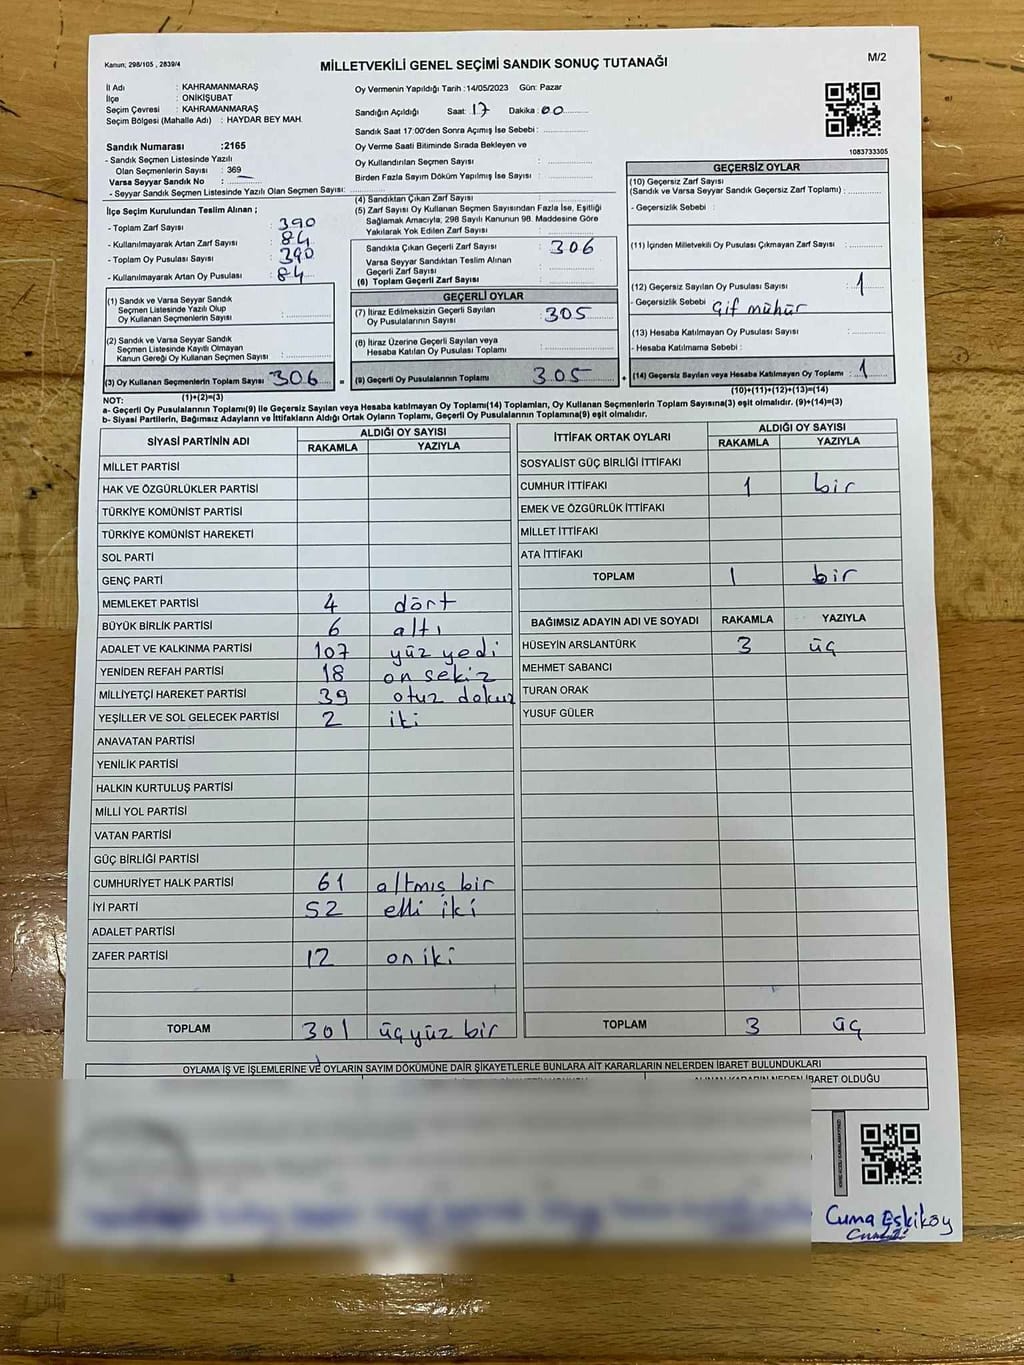 Kanun; 298/105 , 2839/4
MİLLETVEKİLİ GENEL SEÇİMİ SANDIK SONUÇ TUTANAĞI
M/2
İl Adı : KAHRAMANMARAŞ
İlçe : ONİKİŞUBAT
Seçim Çevresi : KAHRAMANMARAŞ
Seçim Bölgesi (Mahalle Adı) : HAYDAR BEY MAH.
Sandık Numarası :2165
- Sandık Seçmen Listesinde Yazılı
Olan Seçmenlerin Sayısı : 369
Varsa Seyyar Sandık No :
- Seyyar Sandık Seçmen Listesinde Yazılı Olan Seçmen Sayısı:
Oy Vermenin Yapıldığı Tarih :14/05/2023 Gün: Pazar
Sandığın Açıldığı Saat: 17 Dakika: 00
Sandık Saat 17:00'den Sonra Açmış İse Sebebi :
Oy Verme Saati Bitiminde Sırada Bekleyen ve
Oy Kullandırılan Seçmen Sayısı :
Birden Fazla Sayım Döküm Yapılmış İse Sayısı :
1083733305
İlçe Seçim Kurulundan Teslim Alınan ;
- Toplam Zarf Sayısı : 390
- Kullanılmayarak Artan Zarf Sayısı : 84
- Toplam Oy Pusulası Sayısı : 390
- Kullanılmayarak Artan Oy Pusulası : 84
(1) Sandık ve Varsa Seyyar Sandık
Seçmen Listesinde Yazılı Olup
Oy Kullanan Seçmenlerin Sayısı :
(2) Sandık ve Varsa Seyyar Sandık
Seçmen Listesinde Kayıtlı Olmayan
Kanun Gereği Oy Kullanan Seçmen Sayısı :
(3) Oy Kullanan Seçmenlerin Toplam Sayısı : 306
(1)+(2)=(3)
(4) Sandıktan Çıkan Zarf Sayısı :
(5) Zarf Sayısı Oy Kullanan Seçmen Sayısından Fazla İse, Eşitliği
Sağlamak Amacıyla, 298 Sayılı Kanunun 98. Maddesine Göre
Yakılarak Yok Edilen Zarf Sayısı :
Sandıkta Çıkan Geçerli Zarf Sayısı : 306
Varsa Seyyar Sandıktan Teslim Alınan
Geçerli Zarf Sayısı :
(6) Toplam Geçerli Zarf Sayısı :
GEÇERLİ OYLAR
(7) İtiraz Edilmeksizin Geçerli Sayılan
Oy Pusulalarının Sayısı : 305
(8) İtiraz Üzerine Geçerli Sayılan veya
Hesaba Katılan Oy Pusulası Toplamı :
= (9) Geçerli Oy Pusulalarının Toplamı : 305
GEÇERSİZ OYLAR
(10) Geçersiz Zarf Sayısı
(Sandık ve Varsa Seyyar Sandık Geçersiz Zarf Toplamı) :
- Geçersizlik Sebebi :
(11) İçinden Milletvekili Oy Pusulası Çıkmayan Zarf Sayısı :
(12) Geçersiz Sayılan Oy Pusulası Sayısı : 1
- Geçersizlik Sebebi : Çif mühür
(13) Hesaba Katılmayan Oy Pusulası Sayısı :
- Hesaba Katılmama Sebebi :
+ (14) Geçersiz Sayılan veya Hesaba Katılmayan Oy Toplamı : 1
(10)+(11)+(12)+(13)=(14)
NOT:
a- Geçerli Oy Pusulalarının Toplamı(9) ile Geçersiz Sayılan veya Hesaba katılmayan Oy Toplamı(14) Toplamları, Oy Kullanan Seçmenlerin Toplam Sayısına(3) eşit olmalıdır. (9)+(14)=(3)
b- Siyasi Partilerin, Bağımsız Adayların ve İttifakların Aldığı Ortak Oyların Toplamı, Geçerli Oy Pusulalarının Toplamına(9) eşit olmalıdır.
SİYASİ PARTİNİN ADI ALDIĞI OY SAYISI
RAKAMLA YAZIYLA
MİLLET PARTİSİ
HAK VE ÖZGÜRLÜKLER PARTİSİ
TÜRKİYE KOMÜNİST PARTİSİ
TÜRKİYE KOMÜNİST HAREKETİ
SOL PARTİ
GENÇ PARTİ
MEMLEKET PARTİSİ 4 dört
BÜYÜK BİRLİK PARTİSİ 6 altı
ADALET VE KALKINMA PARTİSİ 107 yüz yedi
YENİDEN REFAH PARTİSİ 18 on sekiz
MİLLİYETÇİ HAREKET PARTİSİ 39 otuz dokuz
YEŞİLLER VE SOL GELECEK PARTİSİ 2 iki
ANAVATAN PARTİSİ
YENİLİK PARTİSİ
HALKIN KURTULUŞ PARTİSİ
MİLLİ YOL PARTİSİ
VATAN PARTİSİ
GÜÇ BİRLİĞİ PARTİSİ
CUMHURİYET HALK PARTİSİ 61 altmış bir
İYİ PARTİ 52 elli iki
ADALET PARTİSİ
ZAFER PARTİSİ 12 on iki
TOPLAM 301 üçyüz bir
İTTİFAK ORTAK OYLARI ALDIĞI OY SAYISI
RAKAMLA YAZIYLA
SOSYALİST GÜÇ BİRLİĞİ İTTİFAKI
CUMHUR İTTİFAKI 1 bir
EMEK VE ÖZGÜRLÜK İTTİFAKI
MİLLET İTTİFAKI
ATA İTTİFAKI
TOPLAM 1 bir
BAĞIMSIZ ADAYIN ADI VE SOYADI RAKAMLA YAZIYLA
HÜSEYİN ARSLANTÜRK 3 üç
MEHMET SABANCI
TURAN ORAK
YUSUF GÜLER
TOPLAM 3 üç
OYLAMA İŞ VE İŞLEMLERİNE VE OYLARIN SAYIM DÖKÜMÜNE DAİR ŞİKAYETLERLE BUNLARA AİT KARARLARIN NELERDEN İBARET BULUNDUKLARI
ALINAN KARARIN NEDEN İBARET OLDUĞU
Cuma Eşkiköy